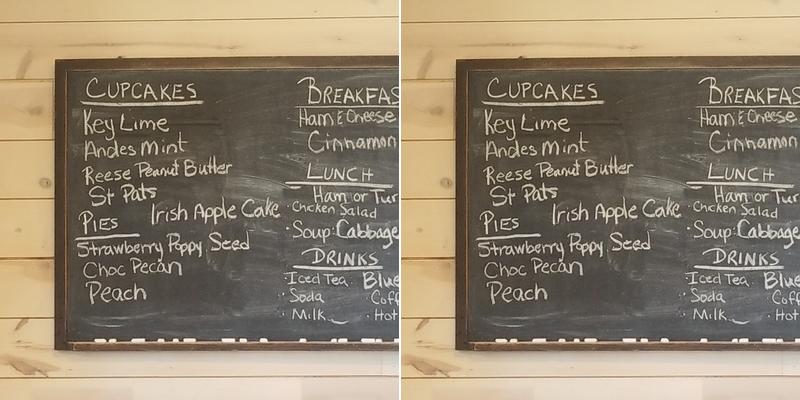 CUPCAKES
Key Lime
Andes Mint
Reese Peanut Butter
St Pats
PIES Irish Apple Cake
Strawberry Poppy Seed
Choc Pecan
Peach
BREAKFAS
Ham & Cheese
Cinnamon
LUNCH
Ham or Tur
· Chicken Salad
· Soup: Cabbage
DRINKS
· Iced Tea Blue
· Soda · Coff
· Milk · Hot
CUPCAKES
Key Lime
Andes Mint
Reese Peanut Butter
St Pats
PIES Irish Apple Cake
Strawberry Poppy Seed
Choc Pecan
Peach
BREAKFAS
Ham & Cheese
Cinnamon
LUNCH
Ham or Tur
· Chicken Salad
· Soup: Cabbage
DRINKS
· Iced Tea Blue
· Soda · Coff
· Milk · Hot